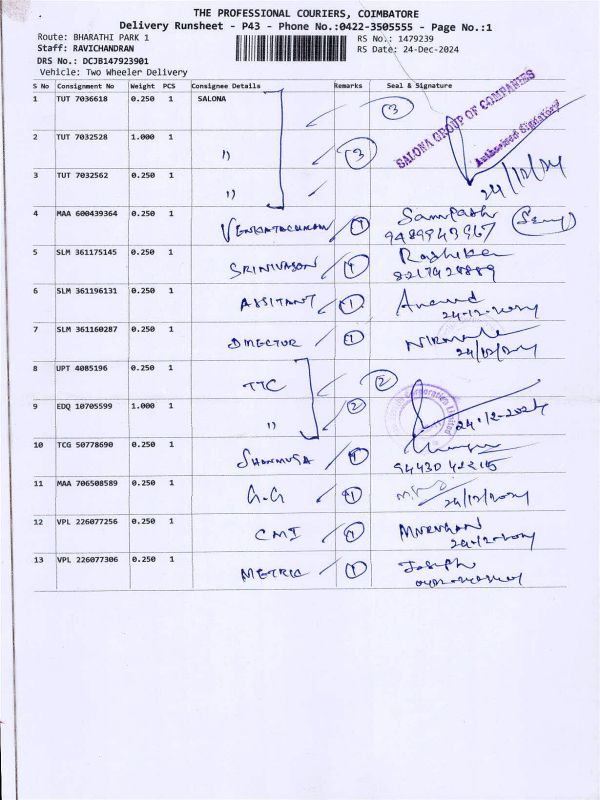 THE PROFESSIONAL COURIERS, COIMBATORE
Delivery Runsheet - P43 - Phone No.:0422-3505555 - Page No.:1
Route: BHARATHI PARK 1 RS No.: 1479239
Staff: RAVICHANDRAN RS Date: 24-Dec-2024
DRS No.: DCJB147923901
Vehicle: Two Wheeler Delivery
S No Consignment No Weight PCS Consignee Details Remarks Seal & Signature
1 TUT 7036618 0.250 1 SALONA 3
SALONA GROUP OF COMPANIES
Authorised Signatory
2 TUT 7032528 1.000 1 " 3
3 TUT 7032562 0.250 1 " 24/12/24
4 MAA 600439364 0.250 1 VENKATACHALAM 1 Sampath
9489943967
5 SLM 361175145 0.250 1 SRINIVASON 1 Rashika
8217428889
6 SLM 361196131 0.250 1 ASSITANT 1 Anand
24-12-2024
7 SLM 361160287 0.250 1 DIRECTOR 1 NIRMALA
24/12/2024
8 UPT 4085196 0.250 1 TTC 2
Corporation Limited
9 EDQ 10705599 1.000 1 " 2 24-12-2024
10 TCG 50778690 0.250 1 SHANMUGA 1
94430 42215
11 MAA 706508589 0.250 1 G.G 1 24/12/2024
12 VPL 226077256 0.250 1 CMI 1 MURUGAN
24-12-2024
13 VPL 226077306 0.250 1 METRIC 1 Joseph